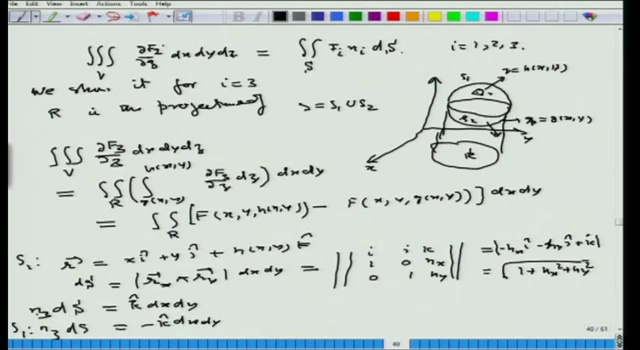 ∭_V ∂F_i/∂z dx dy dz = ∬_S F_i n_i dS. i = 1, 2, 3.
We show it for i = 3
R is the projection of S = S₁ ∪ S₂
S₁ z = h(x,y)
S₂ z = g(x,y)
R
x y
∭_V ∂F₃/∂z dx dy dz
= ∬_R ( ∫_{g(x,y)}^{h(x,y)} ∂F₃/∂z dz ) dx dy
= ∬_R [ F(x, y, h(x,y)) − F(x, y, g(x,y)) ] dx dy
S₁: r⃗ = x î + y ĵ + h(x,y) k̂
dS = | r⃗_x × r⃗_y | dx dy = || i j k ; 1 0 h_x ; 0 1 h_y || = | −h_x î − h_y ĵ + k̂ |
= √(1 + h_x² + h_y²)
n₃ dS = k̂ dx dy
S₁: n₃ dS = −k̂ dx dy
40 / 61
40